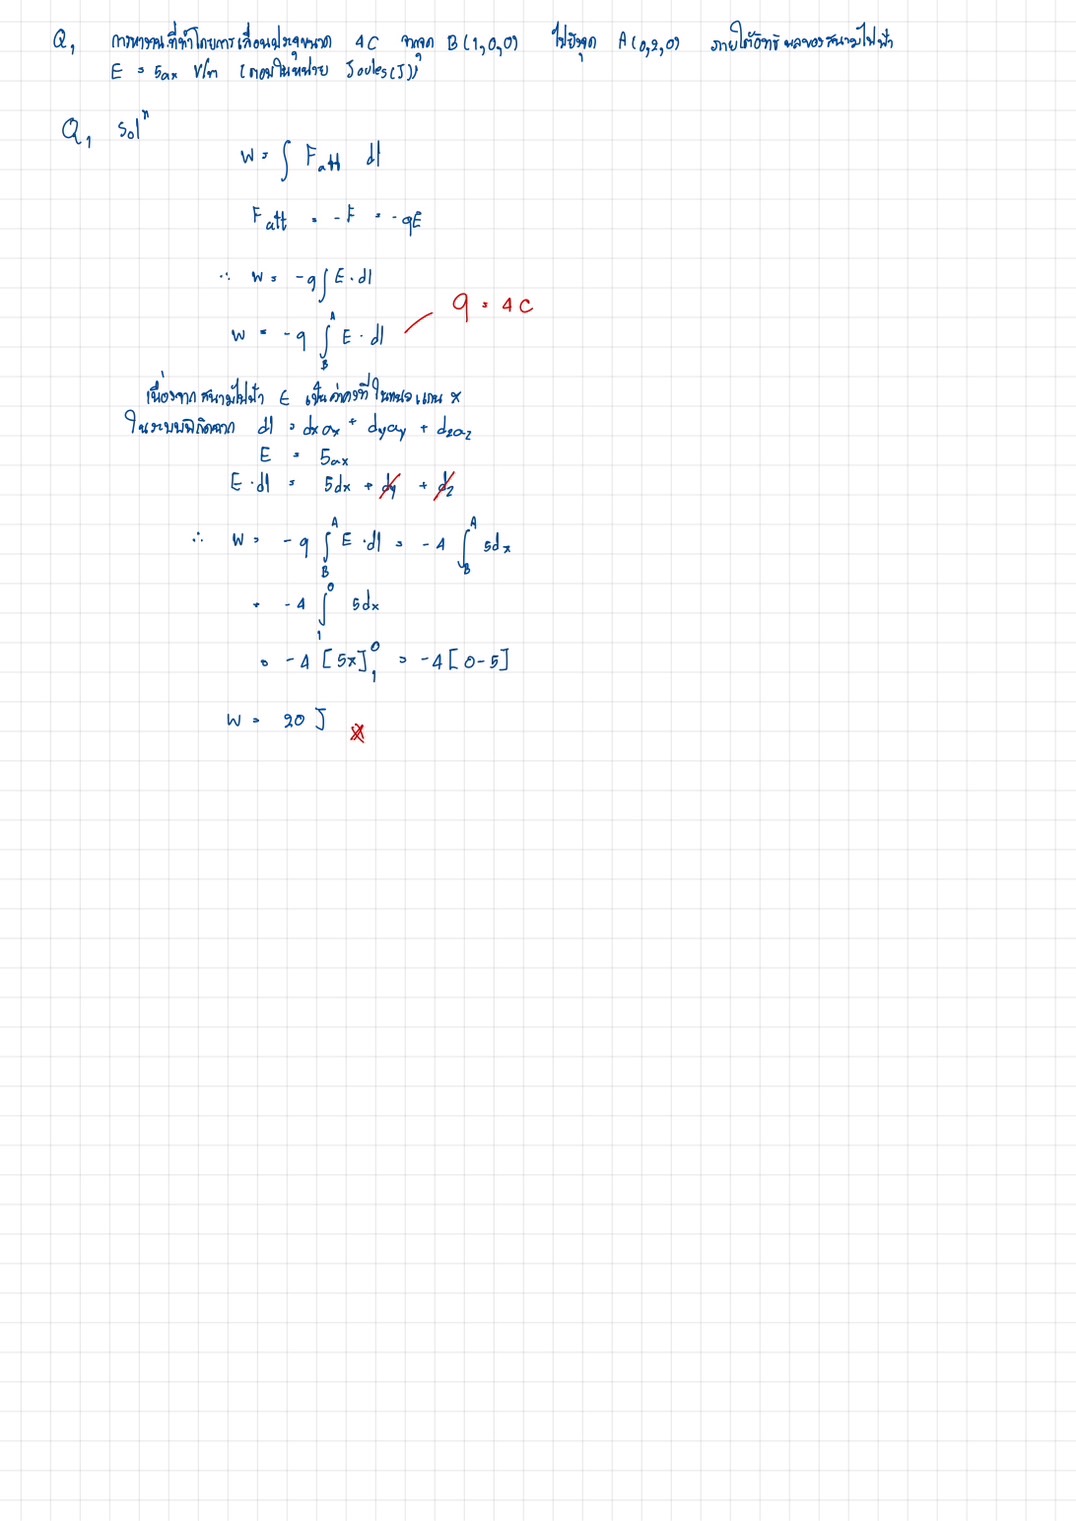 Q1 การหางานที่ทำโดยการเลื่อนประจุขนาด 4C จากจุด B(1,0,0) ไปยังจุด A(0,2,0) ภายใต้อิทธิพลของสนามไฟฟ้า
E = 5ax V/m (ตอบในหน่วย Joules(J))
Q1 Solⁿ
W = ∫ Fatt dl
Fatt = -F = -qE
∴ W = -q∫E·dl
W = -q ∫_B^A E·dl
q = 4C
เนื่องจาก สนามไฟฟ้า E เป็นค่าคงที่ในแนวแกน x
ในระบบพิกัดฉาก dl = dxax + dyay + dzaz
E = 5ax
E·dl = 5dx + dy + dz
∴ W = -q ∫_B^A E·dl = -4 ∫_B^A 5dx
= -4 ∫_1^0 5dx
= -4 [5x]_1^0 = -4[0-5]
W = 20 J